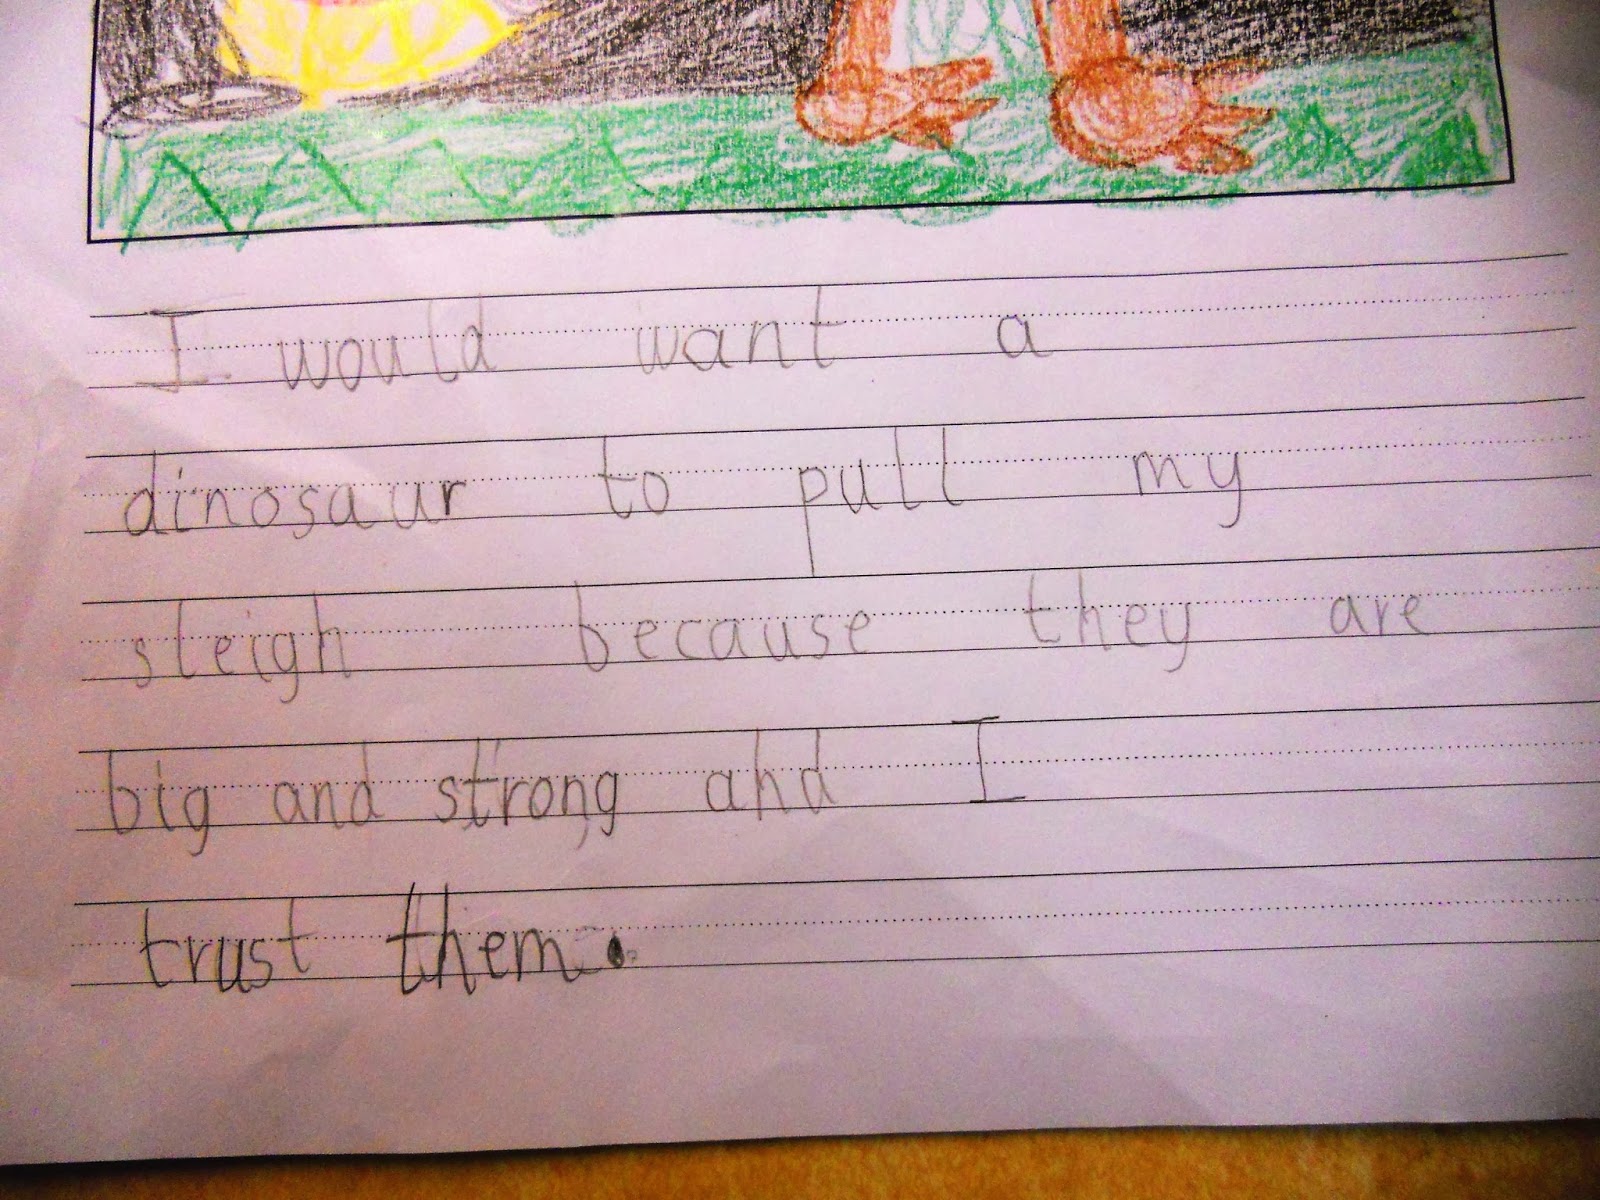 I would want a
dinosaur to pull my
sleigh because they are
big and strong and I
trust them.